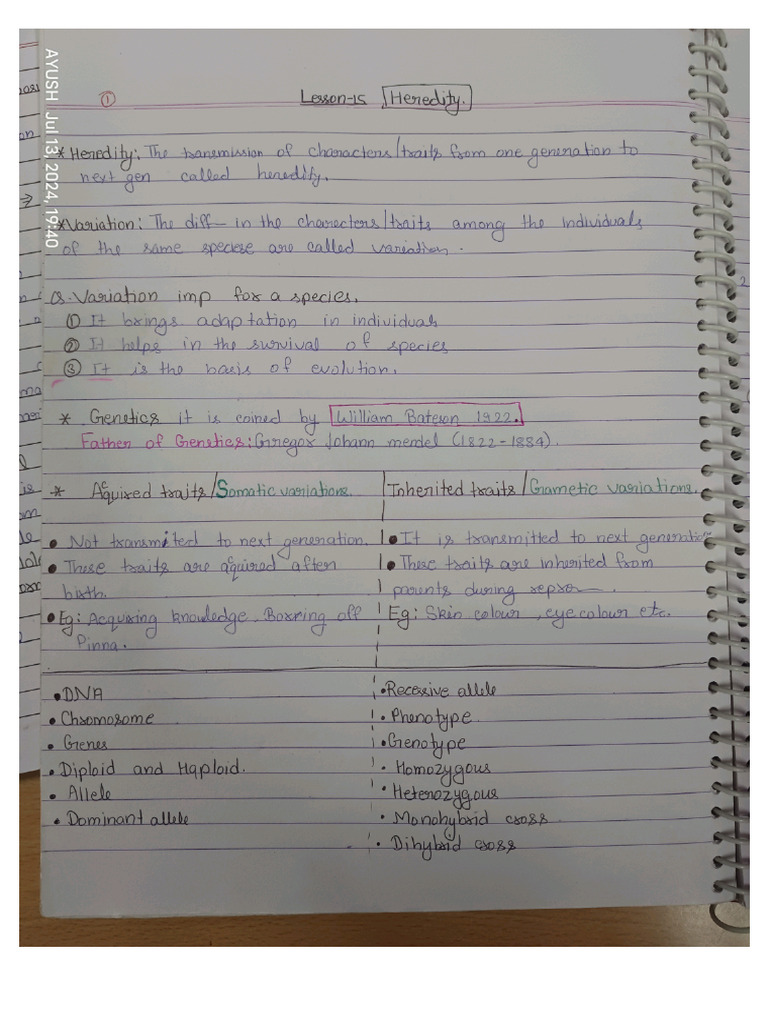 AYUSH Jul 13, 2024, 19:40
① Lesson-15 Heredity.
* Heredity: The transmission of characters/traits from one generation to
next gen called heredity.
* Variation: The diff— in the charecters/traits among the individuals
of the same speciese are called variation.
Q. Variation imp for a species.
① It brings adaptation in individuals
② It helps in the survival of species
③ It is the basis of evolution.
* Genetics it is coined by William Bateson 1922.
Father of Genetics: Gregor Johann mendel (1822-1884).
* Aquired traits/Somatic variations. Inherited traits/Gametic variations.
• Not transmited to next generation. • It is transmitted to next generation
• These traits are aquired after • These traits are inherited from
birth. parents during repro—.
• Eg: Acquiring knowledge, Boxring off Eg: Skin colour, eye colour etc.
Pinna.
• DNA • Recessive allele
• Chromosome • Phenotype
• Genes • Genotype
• Diploid and Haploid. • Homozygous
• Allele • Heterozygous
• Dominant allele • Monohybrid cross
• Dihybrid cross